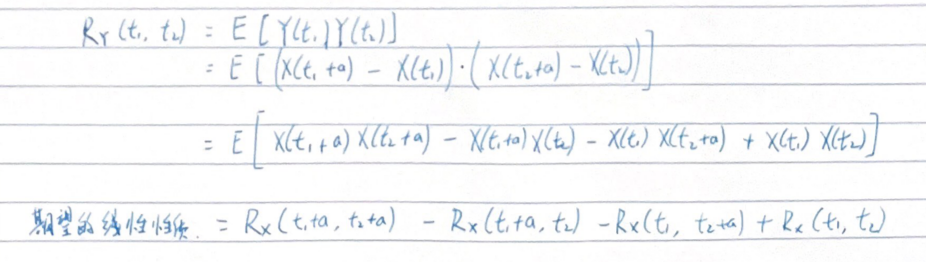 R_Y(t₁, t₂) = E[Y(t₁)Y(t₂)]
= E[(X(t₁+a) - X(t₁))·(X(t₂+a) - X(t₂))]
= E[X(t₁+a)X(t₂+a) - X(t₁+a)X(t₂) - X(t₁)X(t₂+a) + X(t₁)X(t₂)]
期望的线性性质. = R_X(t₁+a, t₂+a) - R_X(t₁+a, t₂) - R_X(t₁, t₂+a) + R_X(t₁, t₂)